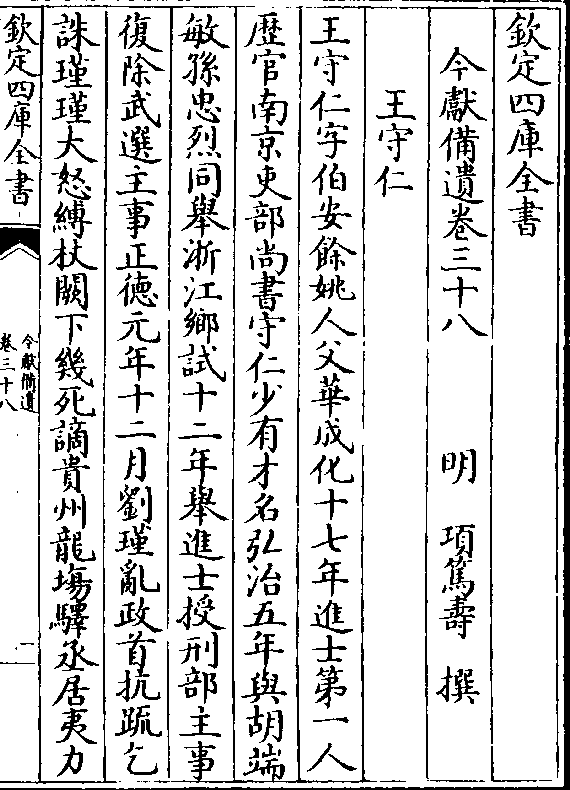 欽定四庫全書
今獻備遺卷三十八　明　項篤壽　撰
王守仁
王守仁字伯安餘姚人父華成化十七年進士第一人
歴官南京吏部尚書守仁少有才名弘治五年與胡端
敏孫忠烈同舉浙江鄉試十二年舉進士授刑部主事
復除武選主事正德元年十二月劉瑾亂政首抗疏乞
誅瑾瑾大怒縛杖闕下幾死謫貴州龍塲驛丞居夷力
欽定四庫全書
今獻備遺
卷三十八
一